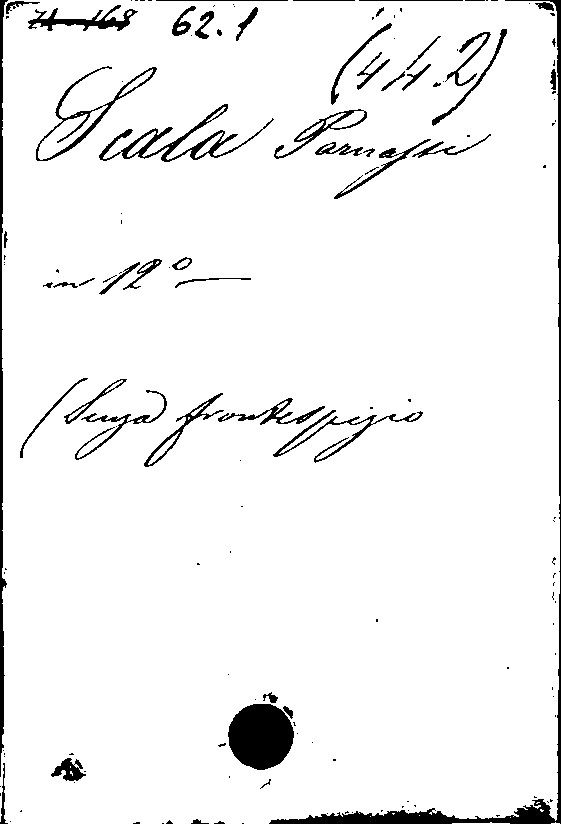 71-168 62.1
(442)
Scala Parnassi
in 12º
(Senza frontespizio